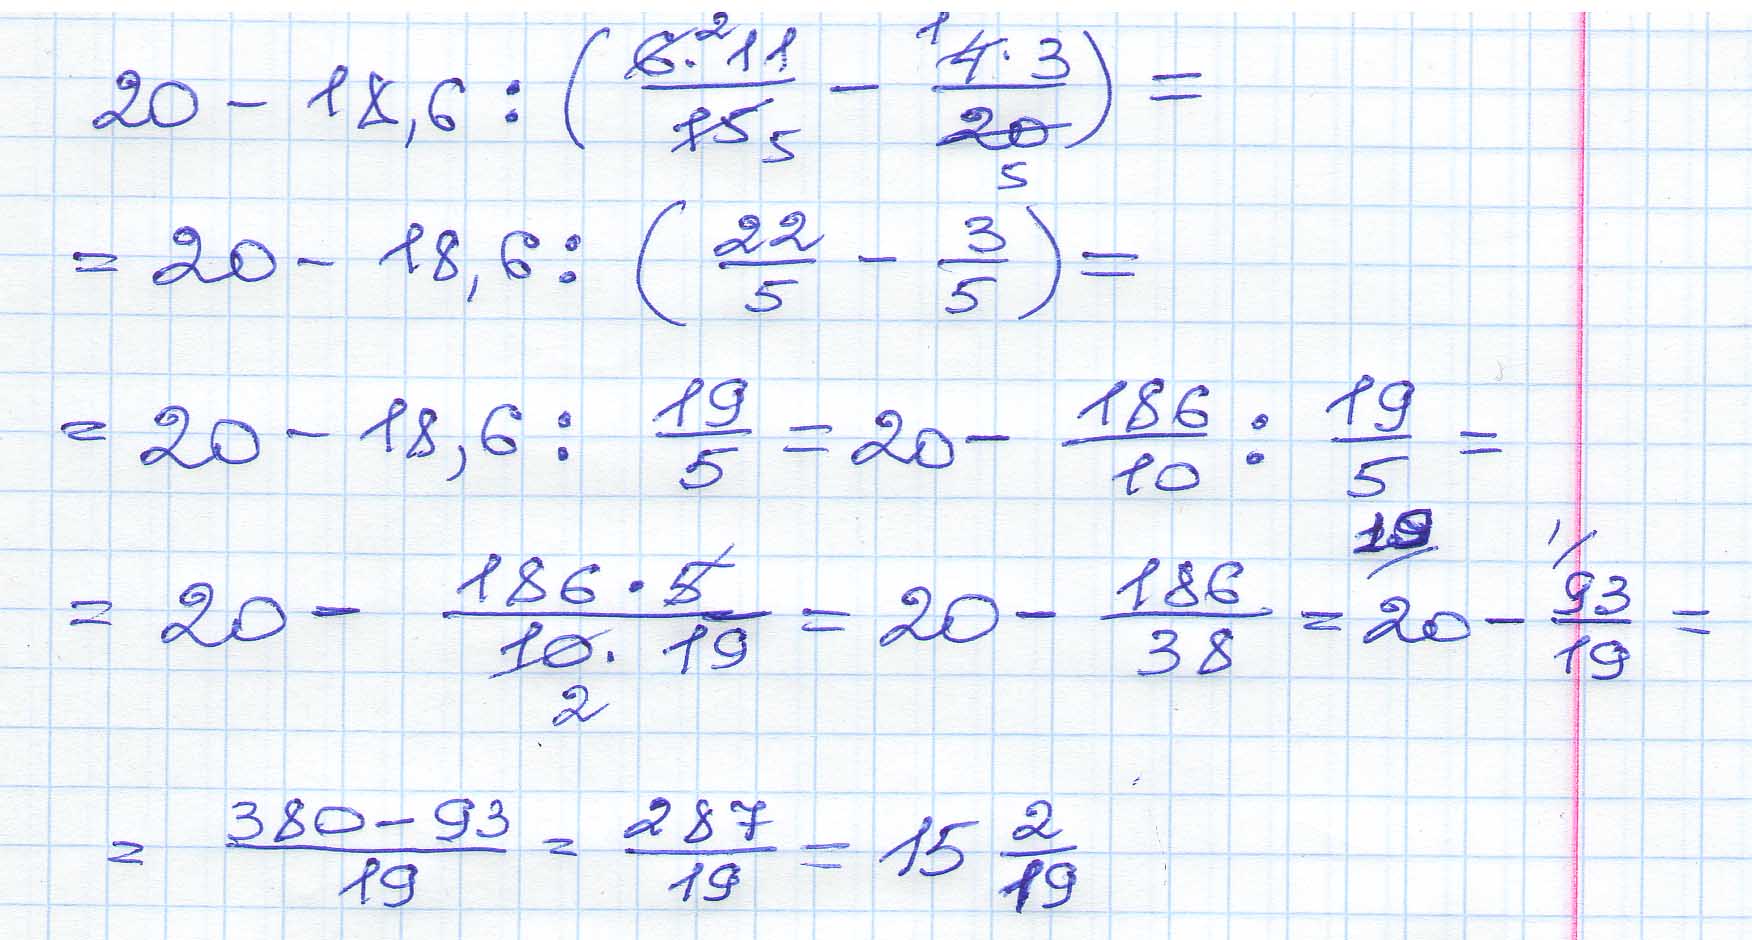 20 - 18,6 : (6·11/15 - 4·3/20) = 2 5 1 5
= 20 - 18,6 : (22/5 - 3/5) =
= 20 - 18,6 : 19/5 = 20 - 186/10 : 19/5 =
= 20 - 186·5/10·19 = 20 - 186/38 = 20 - 93/19 = 2 19 1
= 380-93/19 = 287/19 = 15 2/19